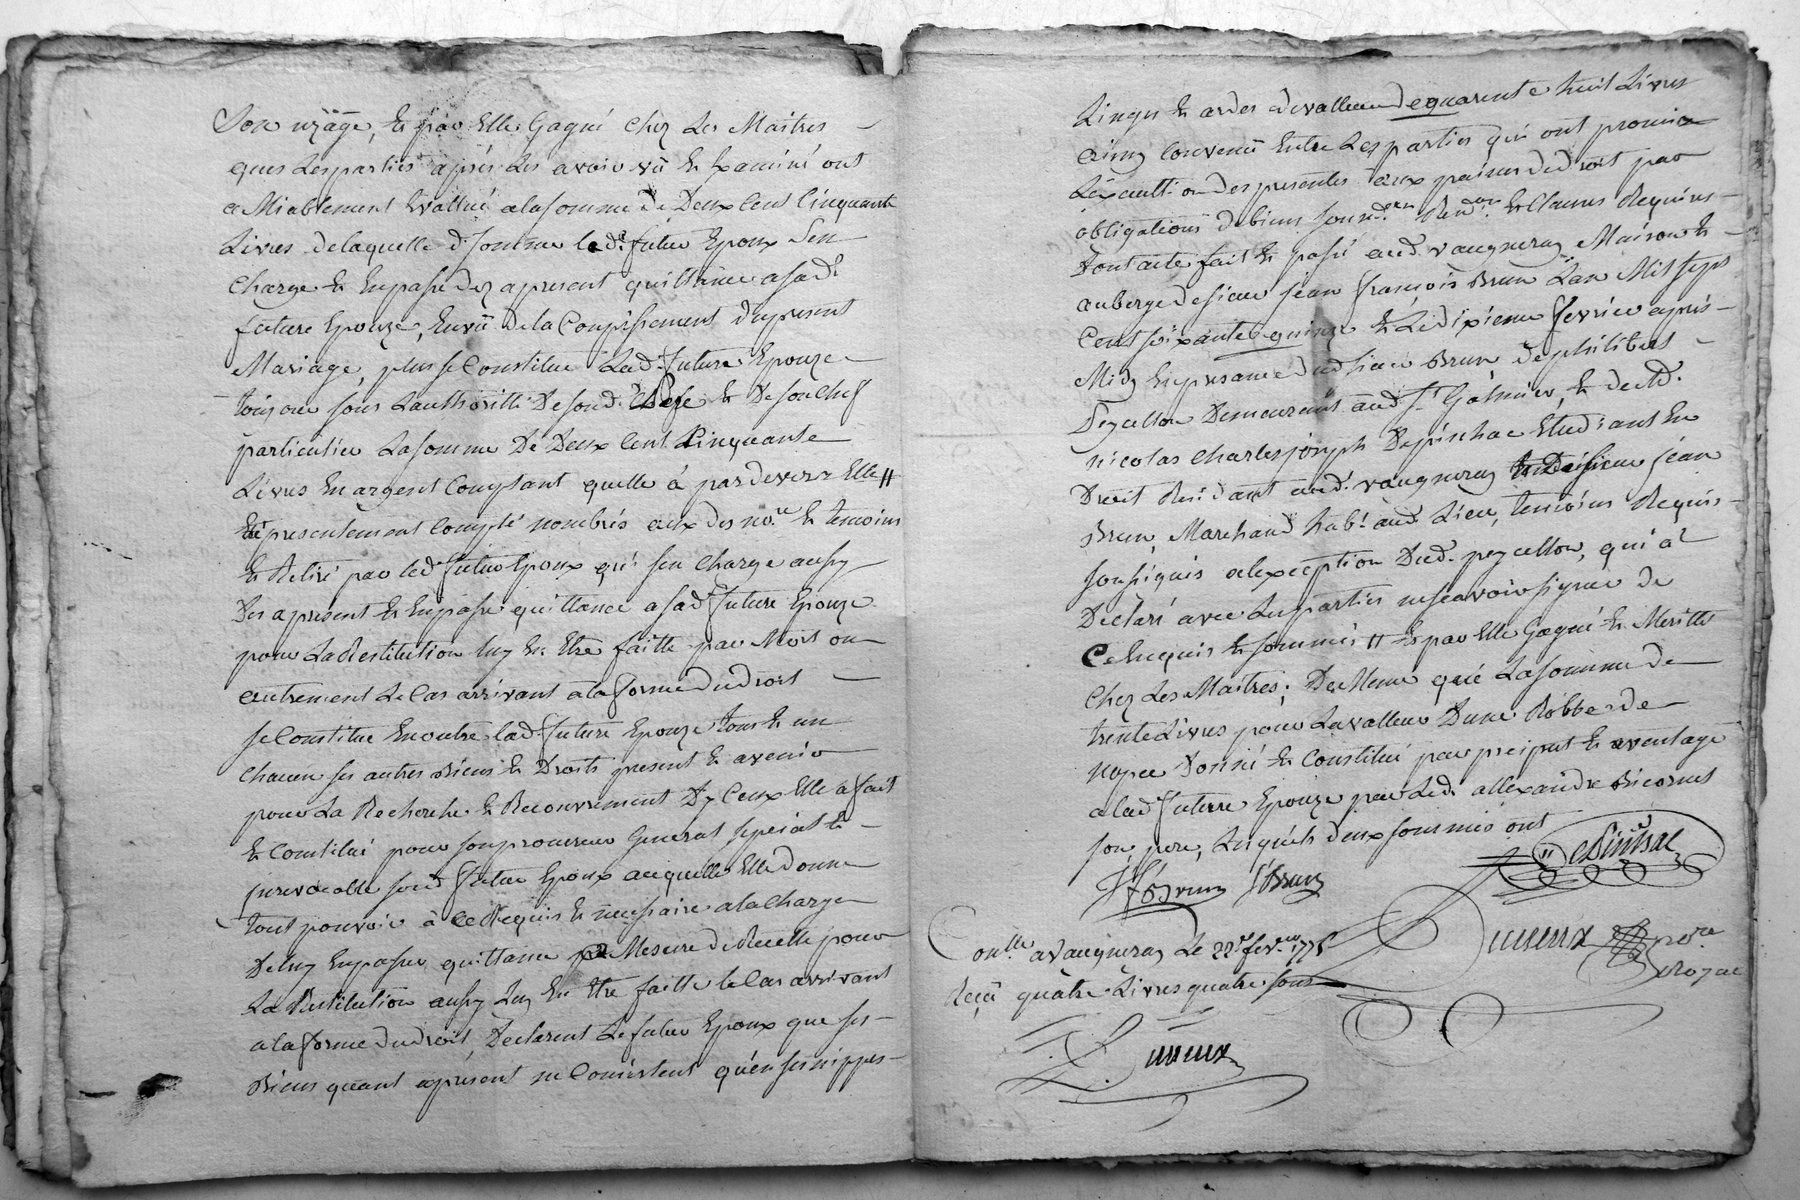 Son uzâge, & par Elle Gagné Chez Les Maitres
ques Lesparties après Les avoir vû & Examiné ont
aMiablement Evallué alasomme de Deux Cent Cinquante
Livres delaquelle d. somme led. futur Epoux Sen
Charge & Enpasse dez apresent quittance asad.
future Epouze, Envû delaConpissement dupresent
Mariage, plus se Constitue Lad. future Epouze
toujour sous Lauthoritté Desond. Pere & Desonchef
particulier Lasomme De Deux Cent Cinquante
Livres En argent Comptant quelle à pardevers Elle //
présentement Compté nombrés aux des no.re & temoins
& Retiré par led. futur Epoux qui sen Charge aussy
Des apresent & Enpasse quittance asad. future Epouze
pour LaRestitution luy En Etre faitte par Mort ou
autrement Le Cas arrivant alaforme du droit
se Constitue Enoutre lad. future Epouze tous & un
Chacun ses autres Biens & Droits present & avenir
pour La Recherche & Recouvrement Dy Ceux Elle à fait
& Constitué pour sonprocureur General special &
jrrevocable sond. futur Epoux auquelle Elle donne
tout pouvoir à Ce Requis & necessaire ala Charge
Deluy Enpasser quittance Mesure de Recette pour
La Restitution aussy Luy En Etre faitte le Cas arrivant
alaforme du droit, Declarent Le futur Epoux que ses
Biens quant apresent ne Consistent qu'en ses nippes
Linges & ardes devalleur dequarente huit Livres
Ainsy Convenû Entre Lesparties qui ont promis
Lexecution des presentes aux peines de droit par
obligations de biens & Clauses Requises
Dont acte fait & passé aud. vaugneray Maison &
auberge desieur jean françois Brun Lan Mil sept
Cent soixante quinze & Le dixieme fevrier après
Midy Enpresence dud sieur Brun, de philibert
Peycellon Demeurant aud. St Galmier, & de Md.
nicolas Charles joseph Depinchac Etudiant En
Droit Residant aud. vaugneray sieur jean
Brun, Marchand hab.t aud. Lieu, temoins Requis
soussignés alexception Dud. peycellon, qui à
Déclaré avec Lesparties nesçavoir signer de
Ce Enquis & sommés // & par Elle Gagné & Meritte
Chez Les Maitres; De Meme que Lasomme de
trente Livres pour Lavalleur Dune Robbe de
nopce Donné & Constitué par preciput & aventage
alad. future Epouze par Led. allexandre Bicornet
son pere, Lesquels deux sommés ont
Brun J Brun
Con.lle avaugneray Le 22.e fev.er 1775
Reçû quatre Livres quatre sous
no.re
royal